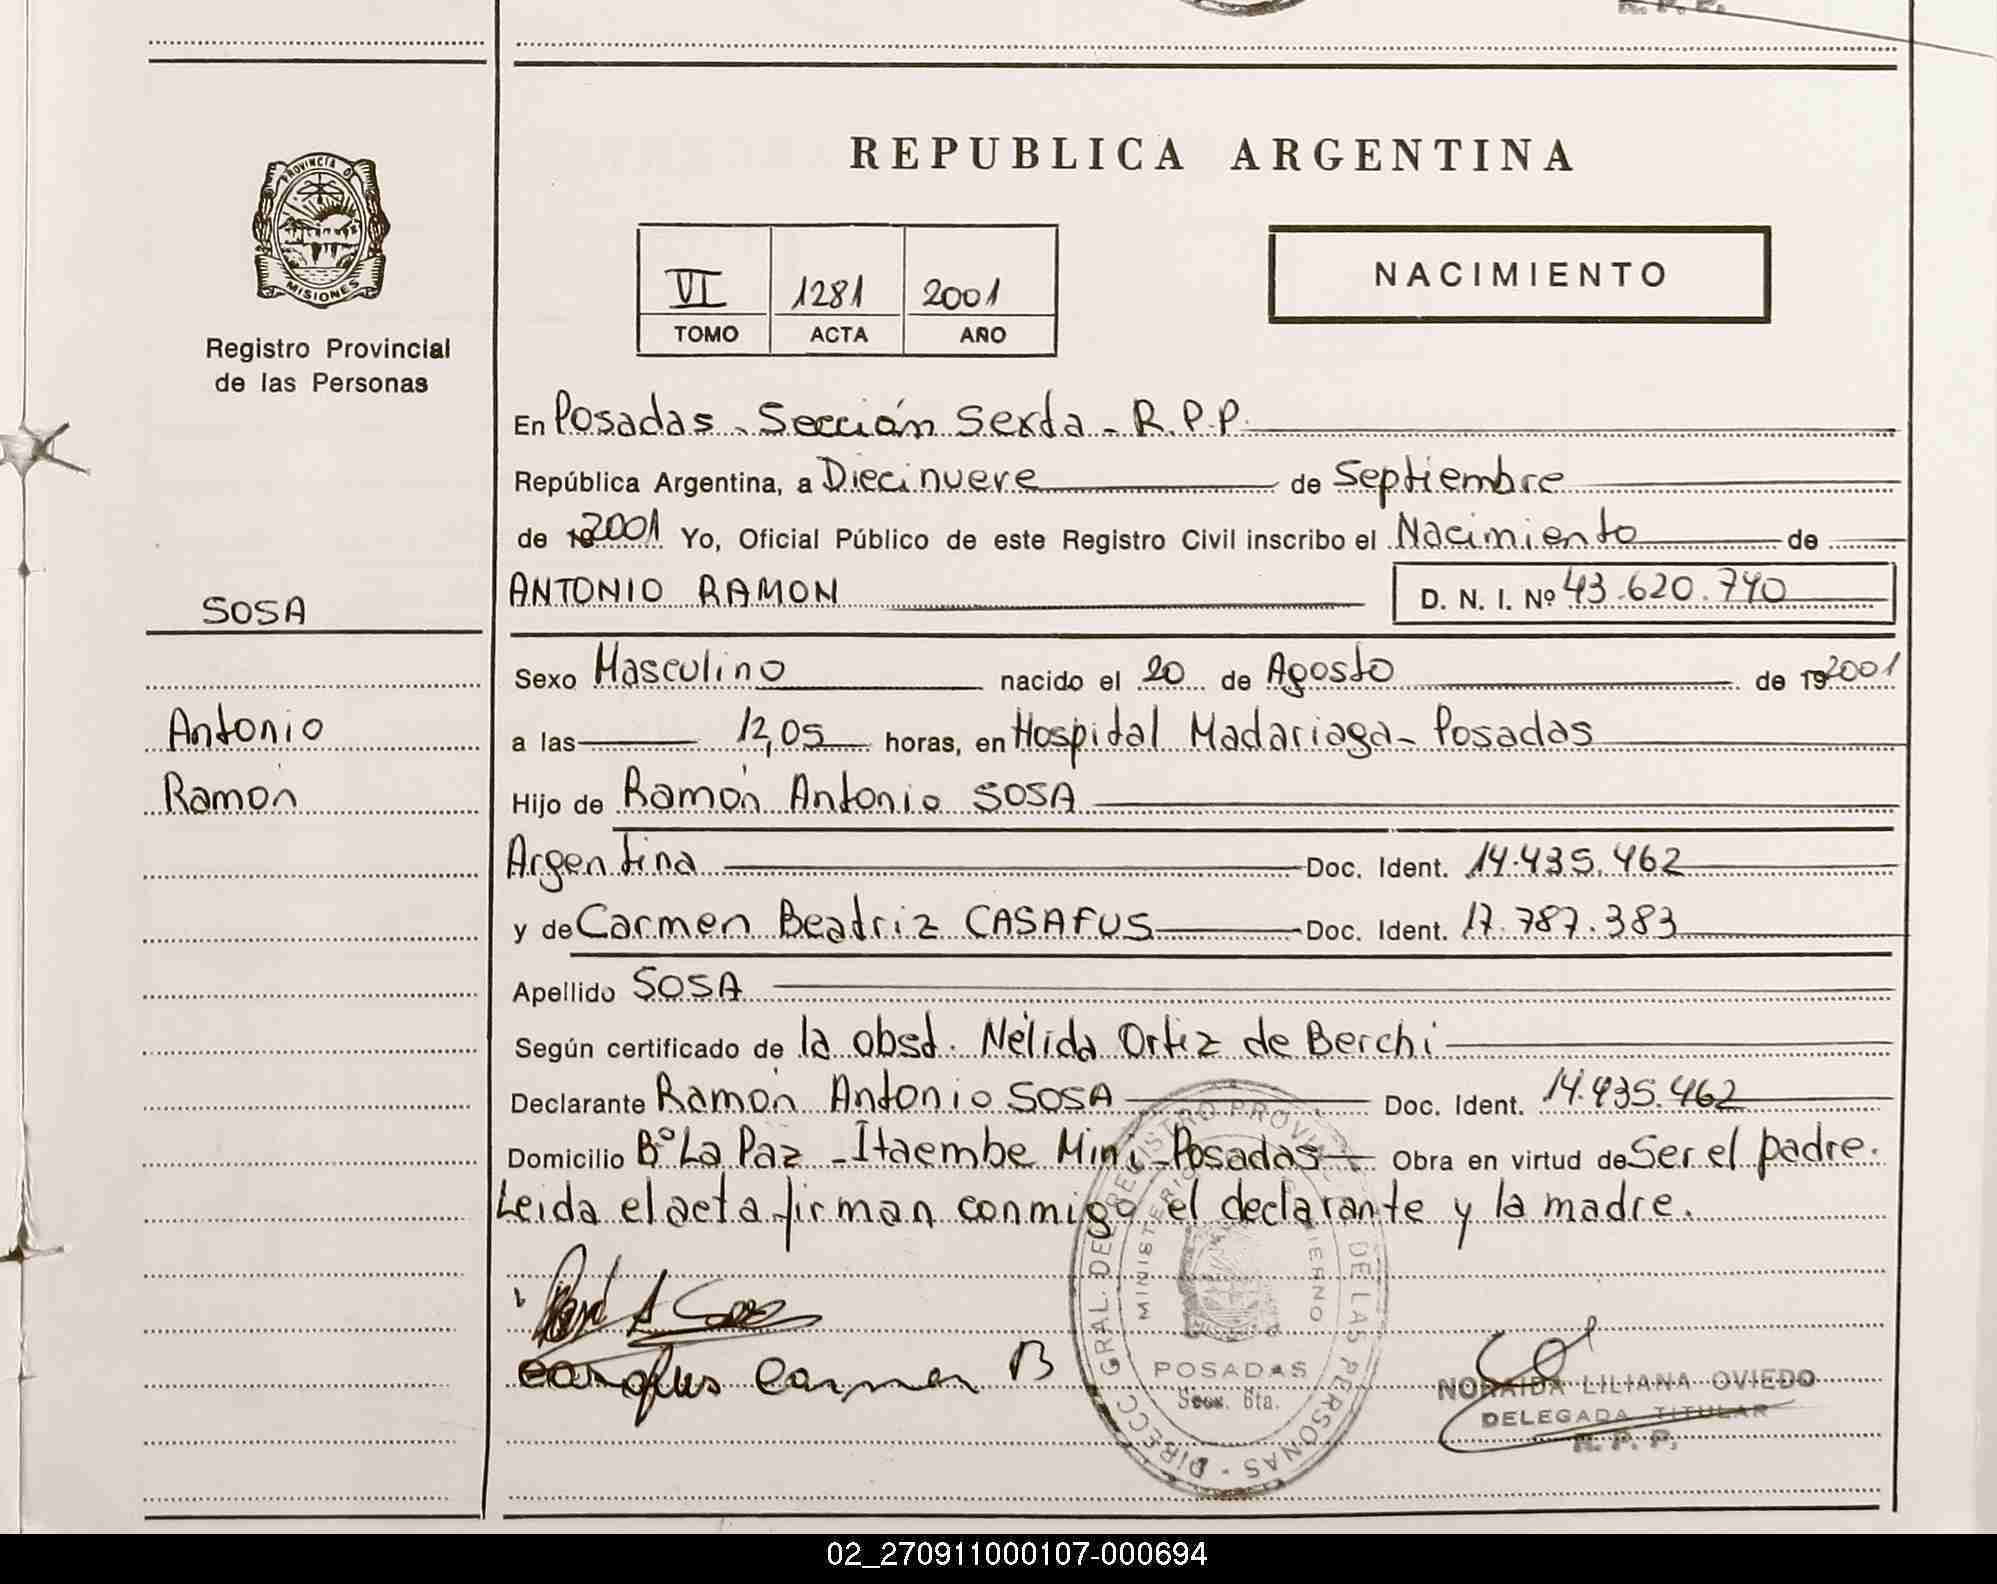 R. P. P.
PROVINCIA D
MISIONES
Registro Provincial
de las Personas
SOSA
Antonio
Ramón
REPUBLICA ARGENTINA
VI 1281 2001
TOMO ACTA AÑO
NACIMIENTO
En Posadas - Sección Sexta - R.P.P.
República Argentina, a Diecinueve de Septiembre
de 192001 Yo, Oficial Público de este Registro Civil inscribo el Nacimiento de
ANTONIO RAMON D. N. I. Nº 43.620.740
Sexo Masculino nacido el 20 de Agosto de 192001
a las 12,05 horas, en Hospital Madariaga - Posadas
Hijo de Ramón Antonio SOSA
Argentina Doc. Ident. 14.435.462
y de Carmen Beatriz CASAFUS Doc. Ident. 17.787.383
Apellido SOSA
Según certificado de la obst. Nélida Ortiz de Berchi
Declarante Ramón Antonio SOSA Doc. Ident. 14.435.462
Domicilio Bº La Paz - Itaembe Mini - Posadas Obra en virtud de Ser el padre.
Leida el acta firman conmigo el declarante y la madre.
Casafus Carmen B
DIRECC. GRAL. DE REGISTRO PROVINCIAL DE LAS PERSONAS
MINISTERIO GOBIERNO
POSADAS
Secc. 6ta.
NORAIDA LILIANA OVIEDO
DELEGADA TITULAR
R. P. P.
02_270911000107-000694